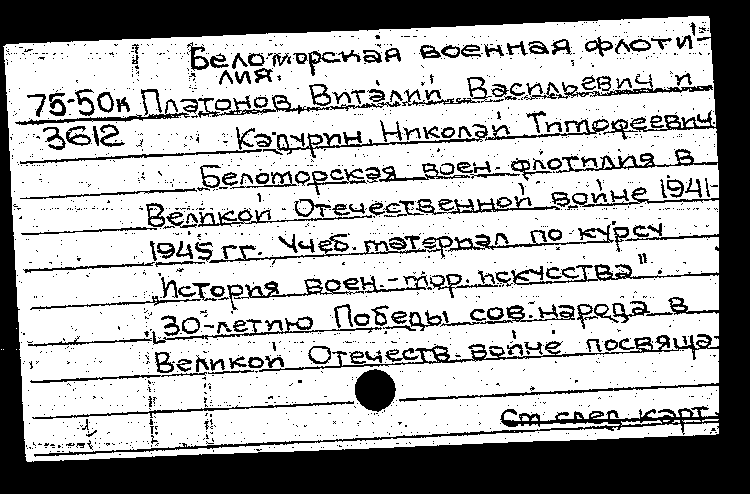 Беломорская военная флоти-
лия.
75-50к Платонов, Виталий Васильевич и
3612 Кадурин, Николай Тимофеевич
Беломорская воен. флотилия в
Великой Отечественной войне 1941-
1945 гг. Учеб. материал по курсу
"История воен.-мор. искусства".
30-летию Победы сов. народа в
Великой Отечеств. войне посвяща-
См след. карт.